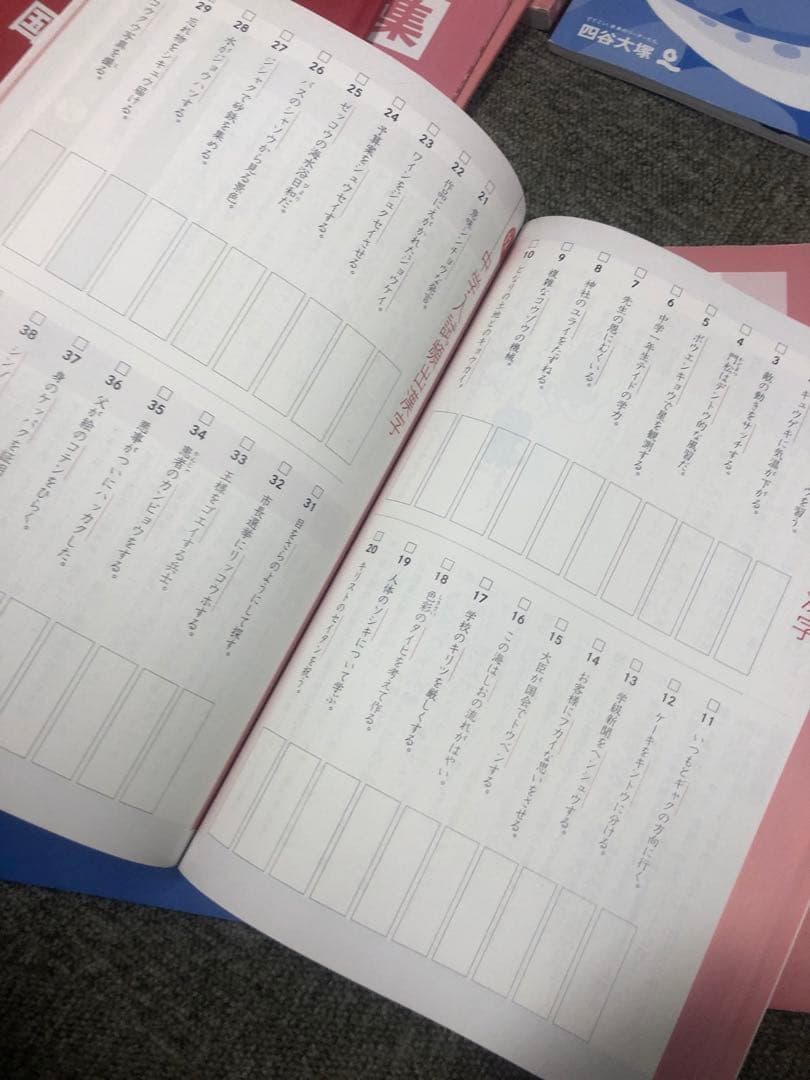 国
集
四谷大塚
ウを習う。
キュウゲキに気温が下がる。
3 敵の動きをサッチする。
4 門松はデントウ的な風習だ。
5 ボウエンキョウで星を観測する。
6 中学一年生テイドの学力。
7 先生の恩にむくいる。
8 神社のユライをたずねる。
9 複雑なコウゾウの機械。
10 となりの土地とのキョウカイ。
11 いつもとギャクの方向に行く。
12 ケーキをキントウに分ける。
13 学級新聞をヘンシュウする。
14 お客様にフカイな思いをさせる。
15 大臣が国会でトウベンする。
16 この海はしおの流れがはやい。
17 学校のキリツを厳しくする。
18 色彩のタイヒを考えて作る。
19 人体のソシキについて学ぶ。
20 キリストのセイタンを祝う。
21 意味シンチョウな発言。
22 作品にえがかれたジョウケイ。
23 ワインをジュクセイさせる。
24 予算案をシュウセイする。
25 ゼッコウの海水浴日和だ。
26 バスのシャソウから見る景色。
27 ジシャクで砂鉄を集める。
28 水がジョウハツする。
29 忘れ物をシキュウ届ける。
コウクウ写真を撮る。
31 目をさらのようにして探す。
32 市長選挙にリッコウホする。
33 王様をゴエイする兵士。
34 患者のカンビョウをする。
35 悪事がついにハッカクした。
36 父が絵のコテンをひらく。
37 身のケッパクを証明
38